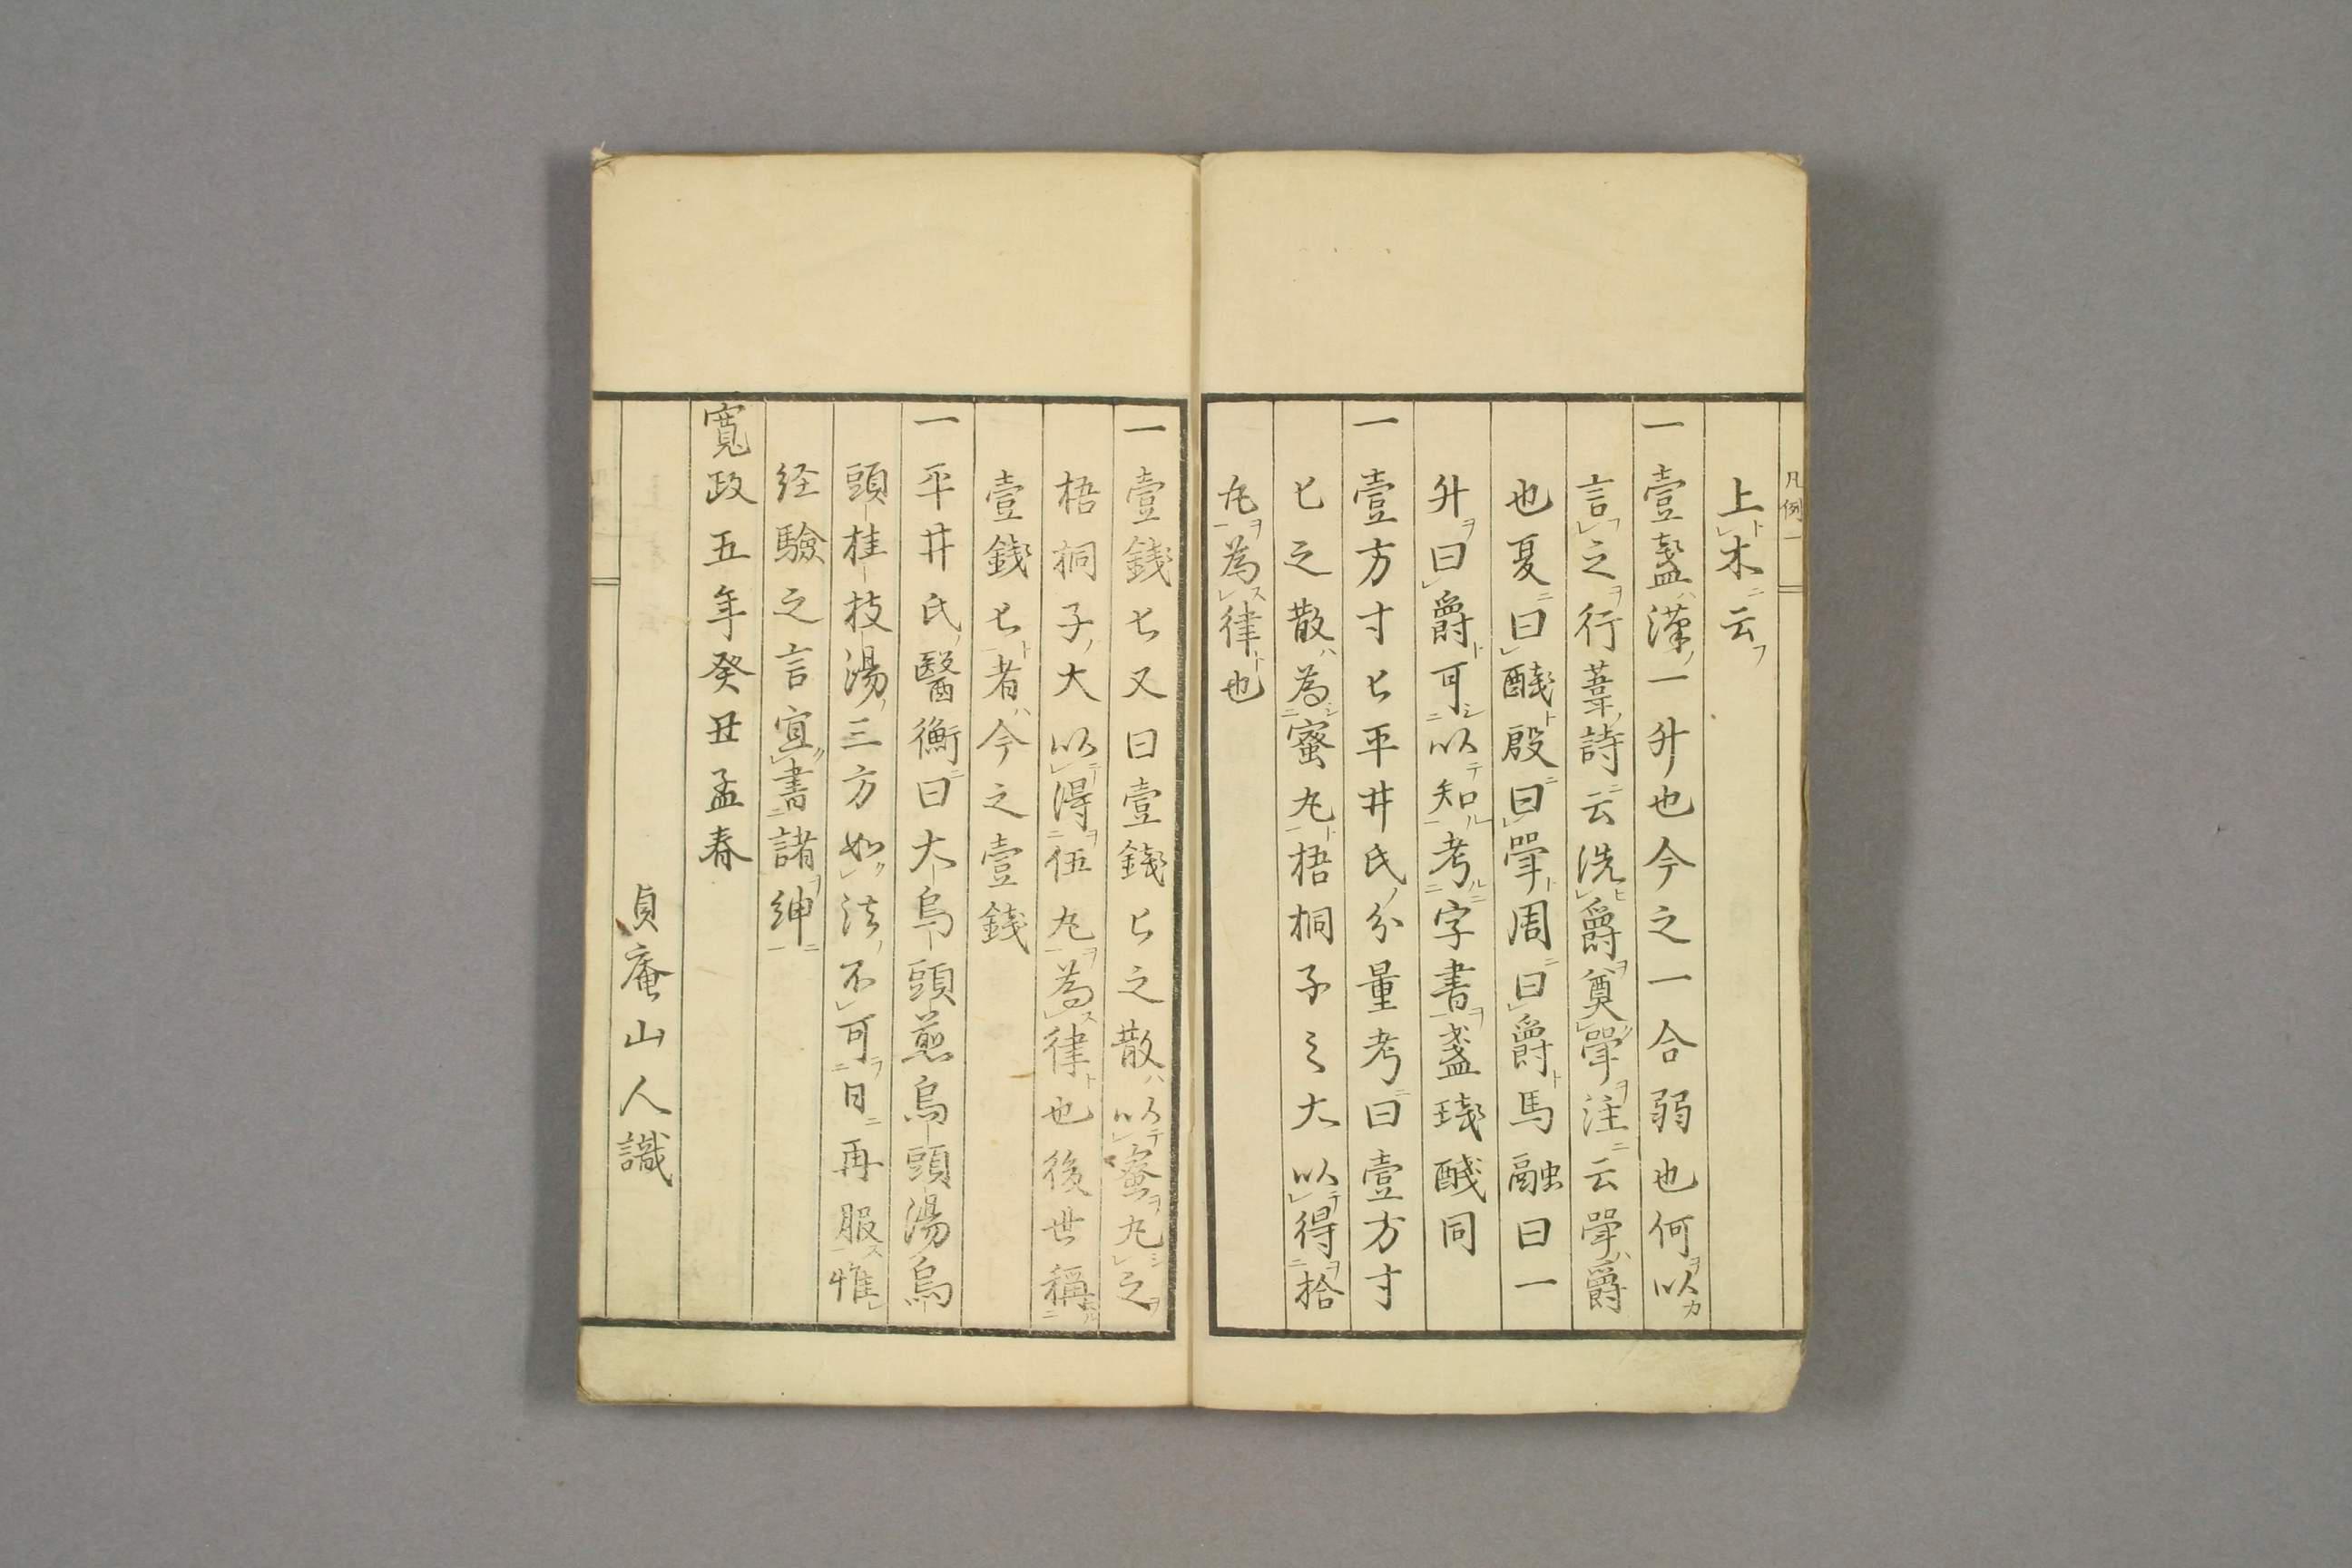 凡例一
上ト木ニ云フ
一壹盞ハ漢ノ一升也今之一合弱也何ヲ以カ
言フ之ヲ行葦ノ詩ニ云洗ヒ爵ヲ奠斝ヲ注ニ云斝ハ爵
也夏ニ曰醆ト殷ニ曰斝ト周ニ曰爵ト馬融曰一
升ヲ曰爵ト可シ以テ知ル考ルニ字書ヲ盞琖醆同
一壹方寸匕平井氏ノ分量考ニ曰壹方寸
匕之散ハ為シ蜜丸ト梧桐子之大以テ得ヲ拾
丸ヲ為ス律ト也
一壹錢匕又曰壹錢匕之散ハ以テ蜜ヲ丸シ之ヲ
梧桐子ノ大以テ得ヲ伍丸ヲ為ス律ト也後世稱
壹錢匕ト者ハ今之壹錢
一平井氏ノ醫衡ニ曰大烏頭煎烏頭湯烏
頭桂枝湯ノ三方如ク法ノ不可ラ日ニ再服ス惟
経驗之言宜ク書諸ヲ紳ニ
寬政五年癸丑孟春
貞庵山人識